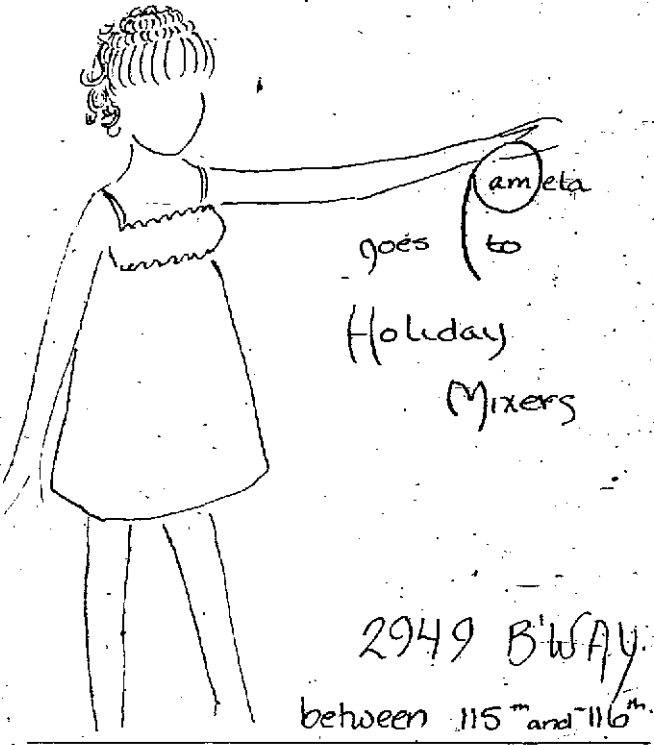 Pameta
goes to
Holiday
Mixers
2949 B'WAY.
between 115th and 116th.